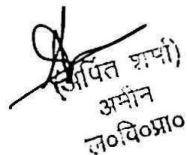 (अर्पित शर्मा)
अमीन
ल०वि०प्रा०